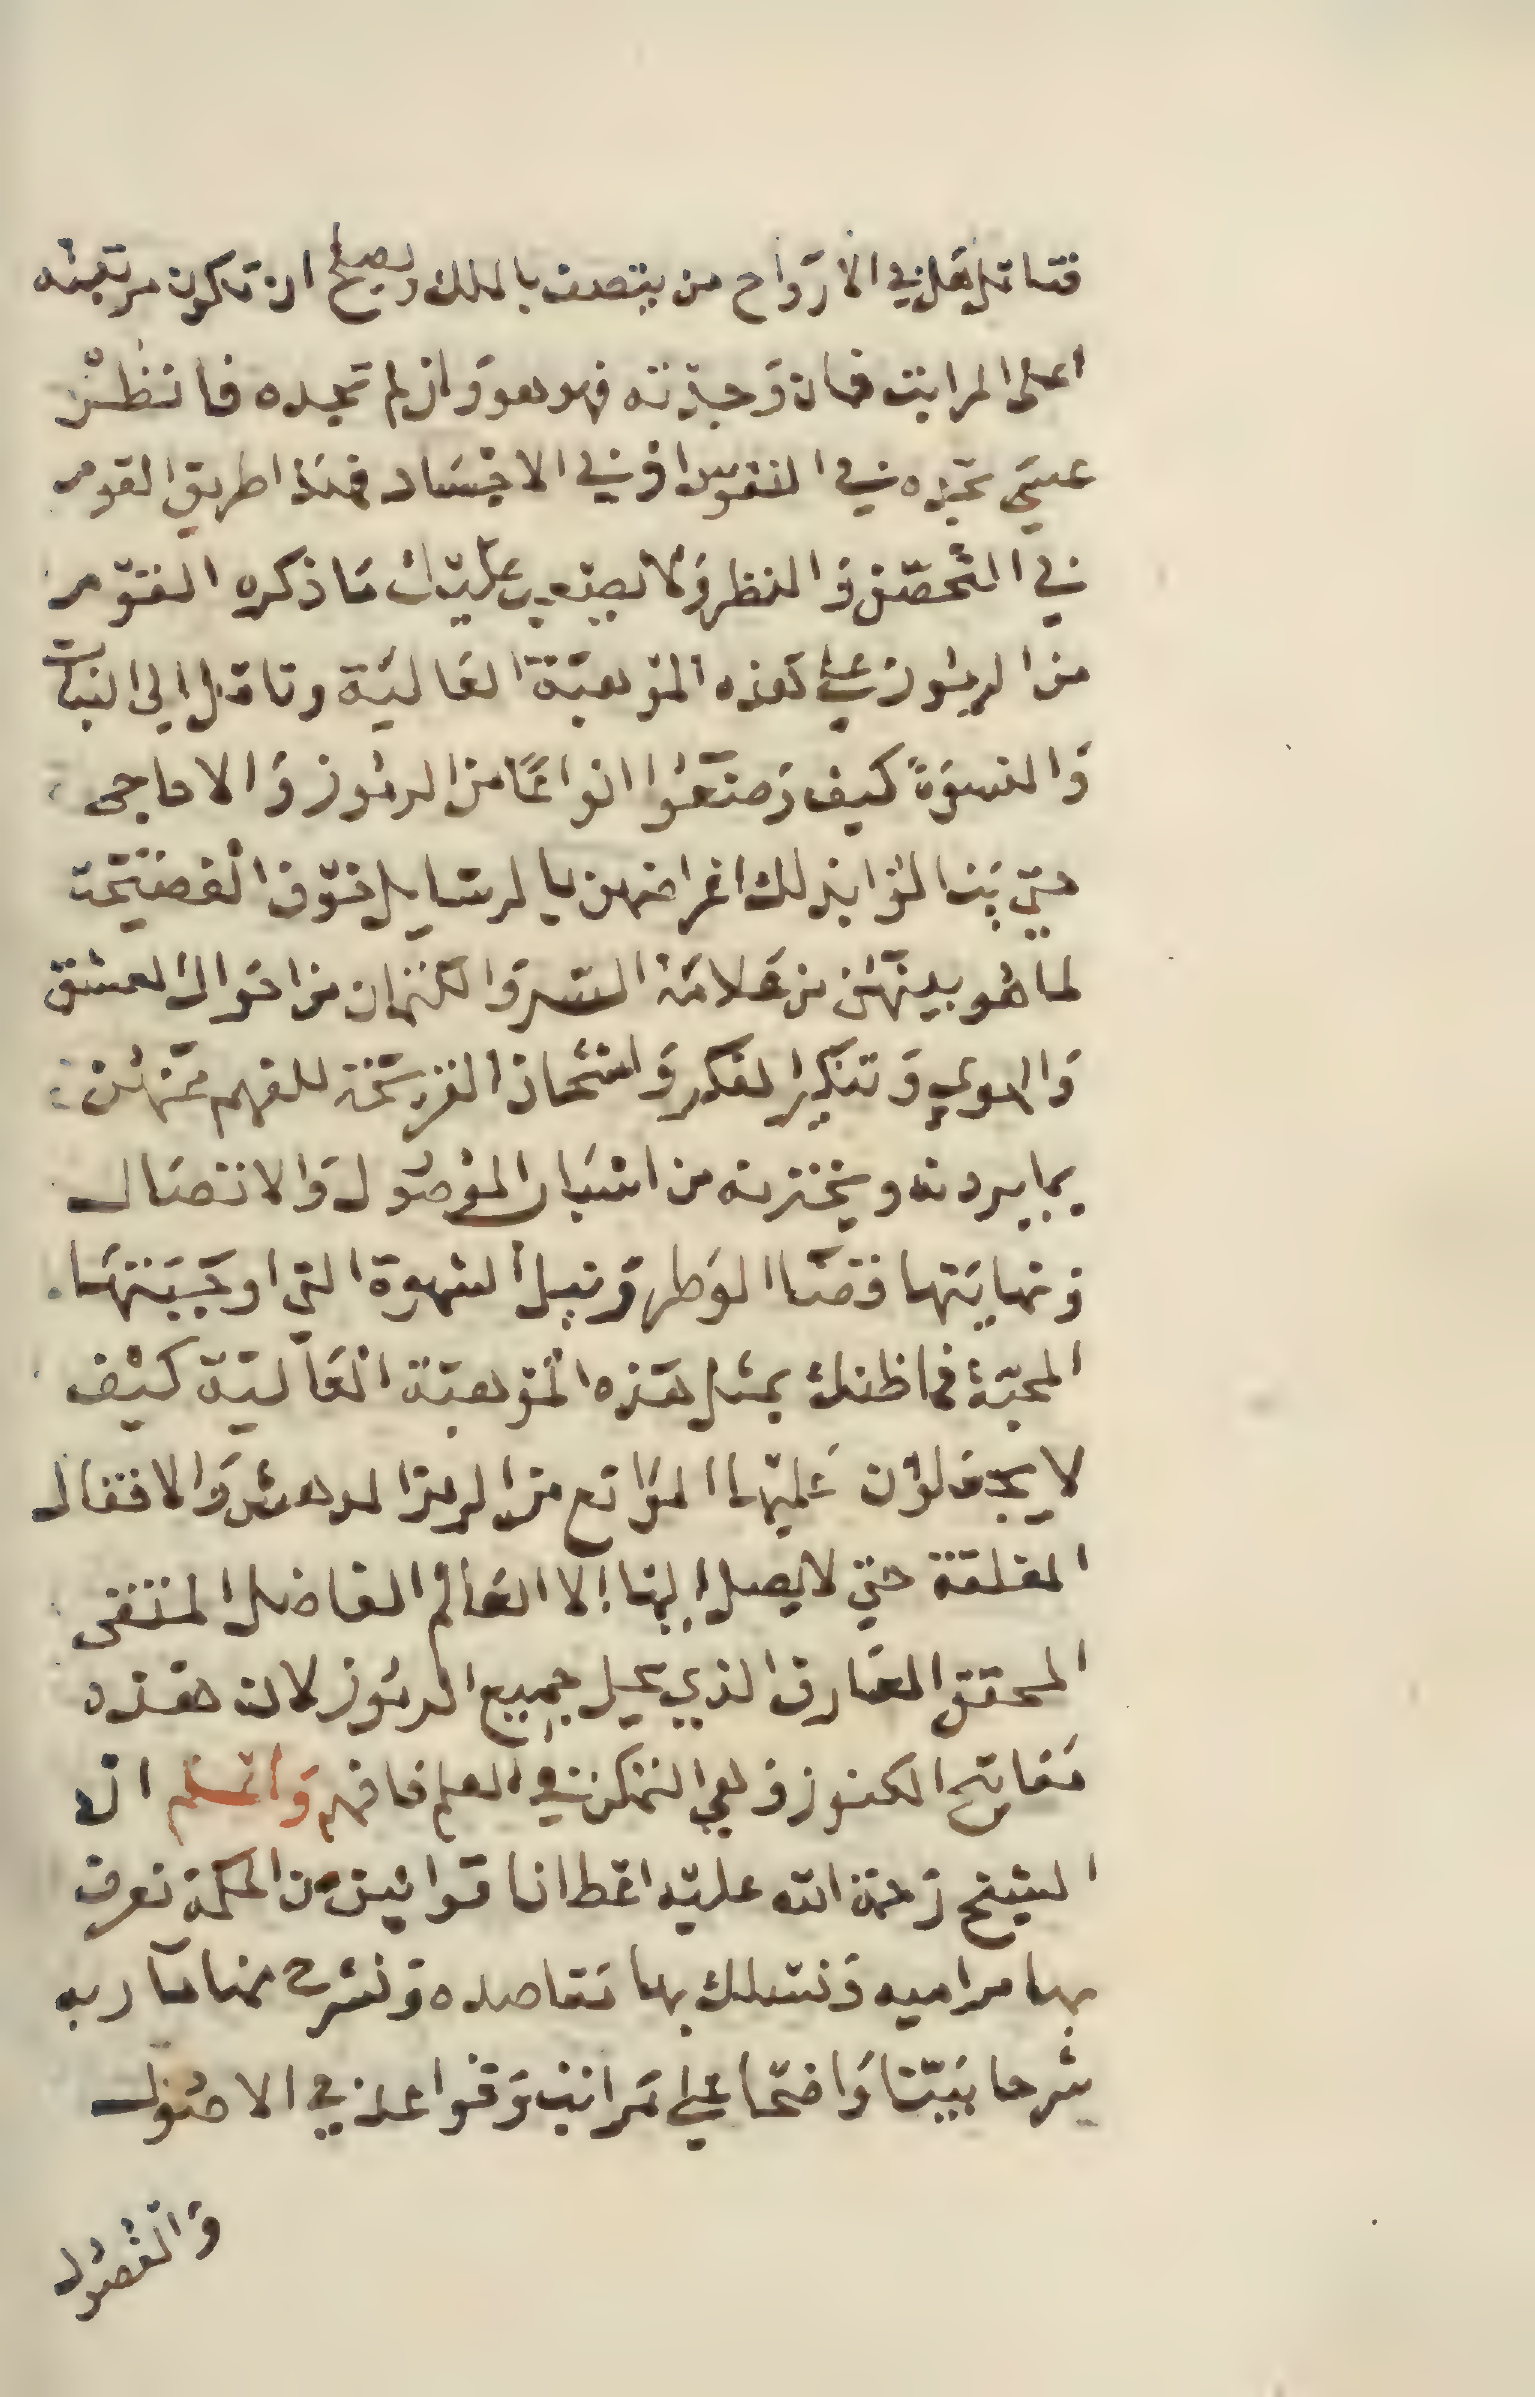 فتامل هل في الارواح من يتصف بالملك ويصلح ان تكون مرتبته
اعلى المراتب فان وجدته فهو هو وان لم تجده فانظر
عسى تجده في النفوس او في الاجساد فهذا طريق القوم
في التحصن والنظر ولا يصعب عليك ما ذكره القوم
من الرموز على هذه الموهبة العالية وتامل الى البنات
والنسوة كيف وضعوا انواعا من الرموز والاحاجى
حتى ينالوا بذلك اغراضهن بالرسايل خوف الفضيحة
لما هو بينهن من علامة الستر والكتمان من احوال العشق
والهوى وتنكير الفكر واشحاذ القريحة للفهم عنهن
بما يردنه ويخترنه من اسباب الموصول والاتصال
ونهايتها قضا الوطر ونيل الشهوة التي اوجبتها
المحبة فما ظنك بمثل هذه الموهبة العالية كيف
لا يجعلون عليها الموانع من الرمز المدهش والاقفال
المغلقة حتى لا يصل اليها الا العالم الفاضل المتقى
المحقق العارف الذي يحل جميع الرموز لان هذه
مفاتيح الكنوز وهي التمكن في العلم فافهم واعلم ان
الشيخ رحمة الله عليه اعطانا قوانين من الحكمة نعرف
بها مراميه ونسلك بها مقاصده ونشرح منها مآربه
شرحا بينا واضحا على مراتب وقواعد في الاصول
والفصول